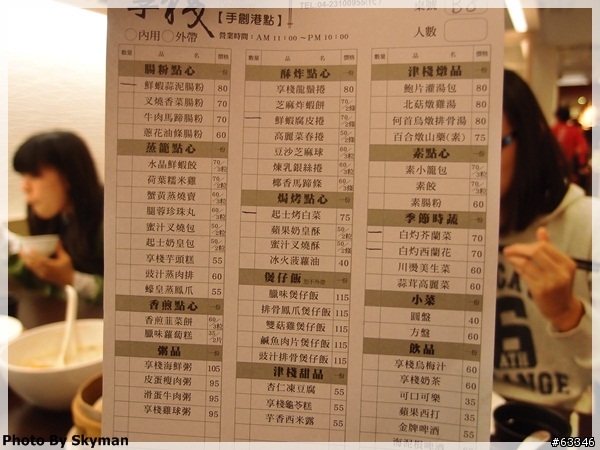 【手創港點】
TEL:04-23108955(代)
○內用 ○外帶 營業時間:AM 11:00~PM 10:00
人數
數量 品名 價
腸粉點心 一份
鮮蝦蒜泥腸粉 80
叉燒香菜腸粉 70
牛肉馬蹄腸粉 70
蔥花油條腸粉 60
蒸籠點心 一份
水晶鮮蝦餃 70/3粒
荷葉糯米雞 70/2粒
蟹黃蒸燒賣 60/3粒
腿蓉珍珠丸 50/3粒
蜜汁叉燒包 50/2粒
起士奶皇包 50/2粒
享棧芋頭糕 55
豉汁蒸肉排 60
蠔皇蒸鳳爪 55
香煎點心 一份
香煎韮菜餅 60/3粒
臘味蘿蔔糕 35/2片
粥品 一份
享棧海鮮粥 105
皮蛋瘦肉粥 95
滑蛋牛肉粥 95
享棧雞球粥 95
數量 品名 價
酥炸點心 一份
享棧龍鬚捲 80
芝麻炸蝦餅 70/2條
鮮蝦腐皮捲 70/2條
高麗菜春捲 50/2條
豆沙芝麻球 50/3粒
煉乳銀絲捲 60
椰香馬蹄條 60/3條
焗烤點心 一份
起士烤白菜 75
蘋果奶皇酥 50/2粒
蜜汁叉燒酥 50/2粒
冰火菠蘿油 40
煲仔飯
臘味煲仔飯 115
排骨鳳爪煲仔飯 115
雙菇雞煲仔飯 115
鹹魚肉片煲仔飯 115
豉汁排骨煲仔飯 115
津棧甜品 一份
杏仁凍豆腐 55
享棧龜苓糕 55
芋香西米露 55
數量 品名 價
津棧燉品 一份
鮑片灌湯包 80
北菇燉雞湯 80
何首烏燉排骨湯 80
百合燉山藥(素) 75
素點心 一份
素小籠包 70/3粒
素餃 70/3粒
素腸粉 60
季節時蔬 一份
白灼芥蘭菜 70
白灼西蘭花 70
川燙美生菜 60
蒜茸高麗菜 60
小菜 一份
圓盤 40
方盤 60
飲品 一份
享棧烏梅汁 60
享棧奶茶 60
可口可樂 35
蘋果西打 35
金牌啤酒 55
Photo By Skyman
#63346